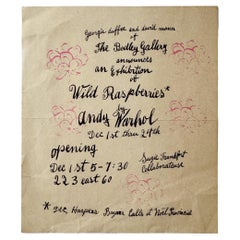 Georgie duffee and david mann
of
The Bodley Gallery
announces
an Exhibition
of
Wild Raspberries*
by
Andy Warhol
Dec 1st thru 24th
opening
Dec 1st 5-7:30
223 east 60
Suzie Frankfurt
Collaborateuse
* DEC, Harpers Bazaar calls it